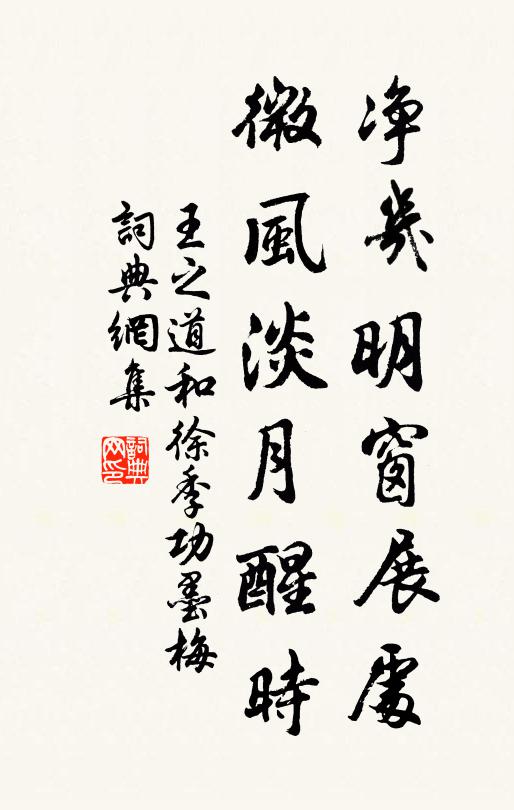 净幾明窗展處
微風淡月醒時
王之道和徐季功墨梅
詞典網集
詞典網印